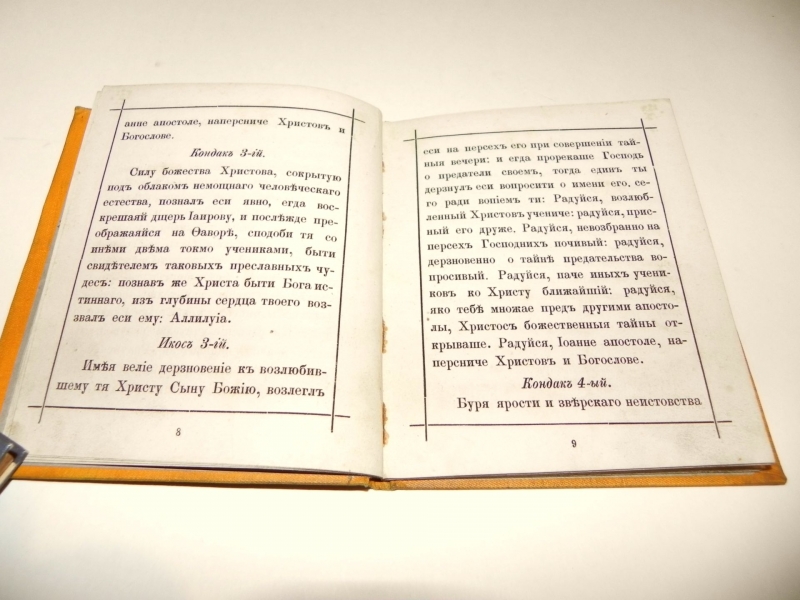 анне апостоле, наперсниче Христовъ и
Богослове.
Кондакъ 3-ій.
Силу божества Христова, сокрытую
подъ облакомъ немощнаго человѣческаго
естества, позналъ еси явно, егда вос-
крешаяй дщерь Іаирову, и послѣжде пре-
ображаяйся на Ѳаворѣ, сподоби тя со
инѣми двѣма токмо учениками, быти
свидѣтелемъ таковыхъ преславныхъ чу-
десъ: познавъ же Христа быти Бога ис-
тиннаго, изъ глубины сердца твоего воз-
звалъ еси ему: Аллилуіа.
Икосъ 3-ій.
Имѣя веліе дерзновеніе къ возлюбив-
шему тя Христу Сыну Божію, возлеглъ
8
еси на персехъ его при совершеніи тай-
ныя вечери: и егда прорекаше Господь
о предатели своемъ, тогда единъ ты
дерзнулъ еси вопросити о имени его, се-
го ради вопіемъ ти: Радуйся, возлюб-
ленный Христовъ учениче: радуйся, прис-
ный его друже. Радуйся, невозбранно на
персехъ Господнихъ почивый: радуйся,
дерзновенно о тайнѣ предательства во-
просивый. Радуйся, паче иныхъ учени-
ковъ ко Христу ближайшій: радуйся,
яко тебѣ множае предъ другими апосто-
лы, Христосъ божественныя тайны от-
крываше. Радуйся, Іоанне апостоле, на-
персниче Христовъ и Богослове.
Кондакъ 4-ый.
Буря ярости и звѣрскаго неистовства
9